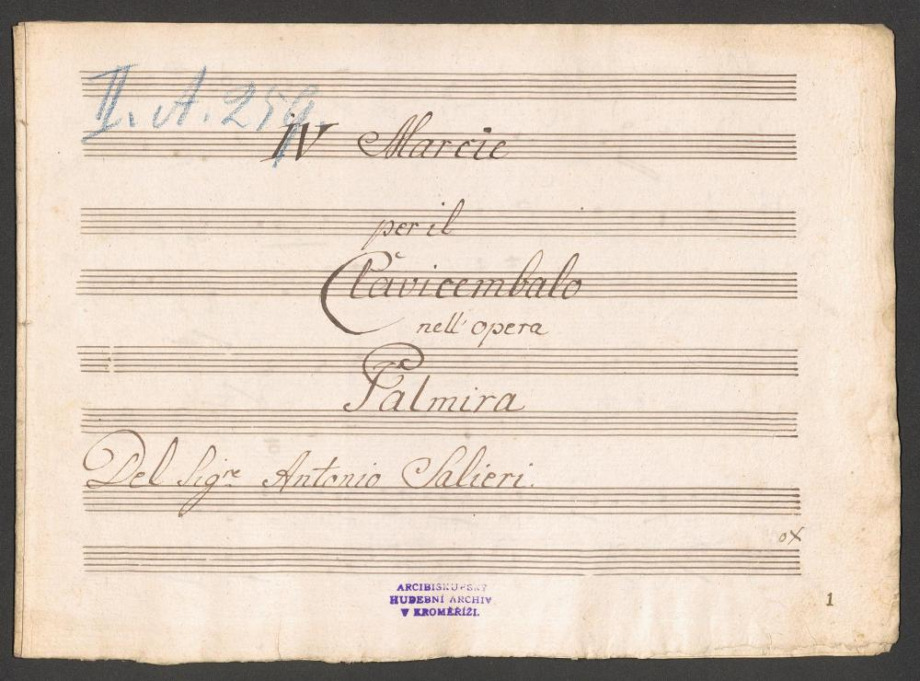 II. A. 259.
IV Marcie
per il
Clavicembalo
nell' opera
Palmira
Del Sig.re Antonio Salieri.
ox
ARCIBISKUPSKÝ
HUDEBNÍ ARCHIV
V KROMĚŘÍŽI.
1